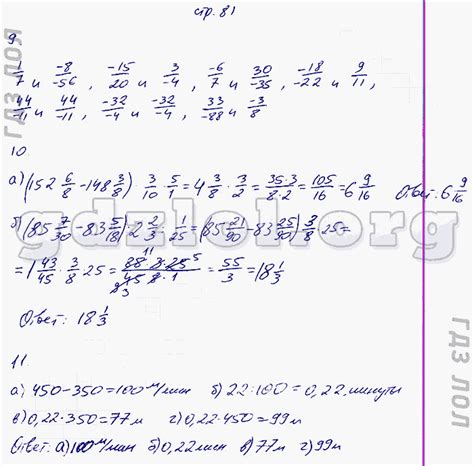 стр. 81
9
1/7 и -8/-56, -15/20 и 3/-4, -6/7 и 30/-35, -18/-22 и 9/11,
44/-11 и 44/-11, -32/-4 и -32/-4, 33/-88 и -3/8
10.
а) (152 6/8 - 148 3/8) · 3/10 · 5/1 = 4 3/8 · 3/2 = 35·3/8·2 = 105/16 = 6 9/16 Ответ: 6 9/16
б) (85 7/30 - 83 5/18) : 2 2/3 : 1/25 = (85 21/90 - 83 25/90) 3/8 · 25 =
= 1 43/45 · 3/8 · 25 = 88·3·25/45·8·1 = 55/3 = 18 1/3
Ответ: 18 1/3
11.
а) 450 - 350 = 100 м/мин б) 22 : 100 = 0,22 минуты
в) 0,22 · 350 = 77 м г) 0,22 · 450 = 99 м
Ответ: а) 100 м/мин б) 0,22 мин в) 77 м г) 99 м
gdzlol.org
ГДЗ ЛОЛ
ГДЗ ЛОЛ